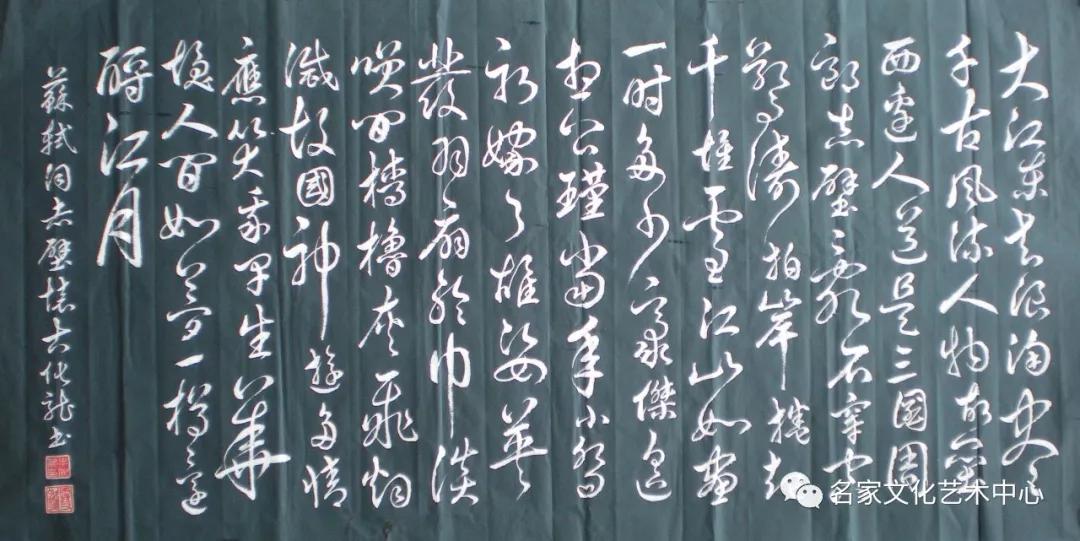 大江東去浪淘盡
千古風流人物故壘
西邊人道是三國周
郎赤壁亂石穿空
驚濤拍岸捲起
千堆雪江山如畫
一时多少豪傑遙
想公瑾當年小喬
初嫁了雄姿英
發羽扇綸巾談
笑間檣櫓灰飛烟
滅故國神遊多情
應笑我早生華
髮人間如夢一樽還
酹江月
蘇軾詞赤壁懷古化龍書
名家文化艺术中心